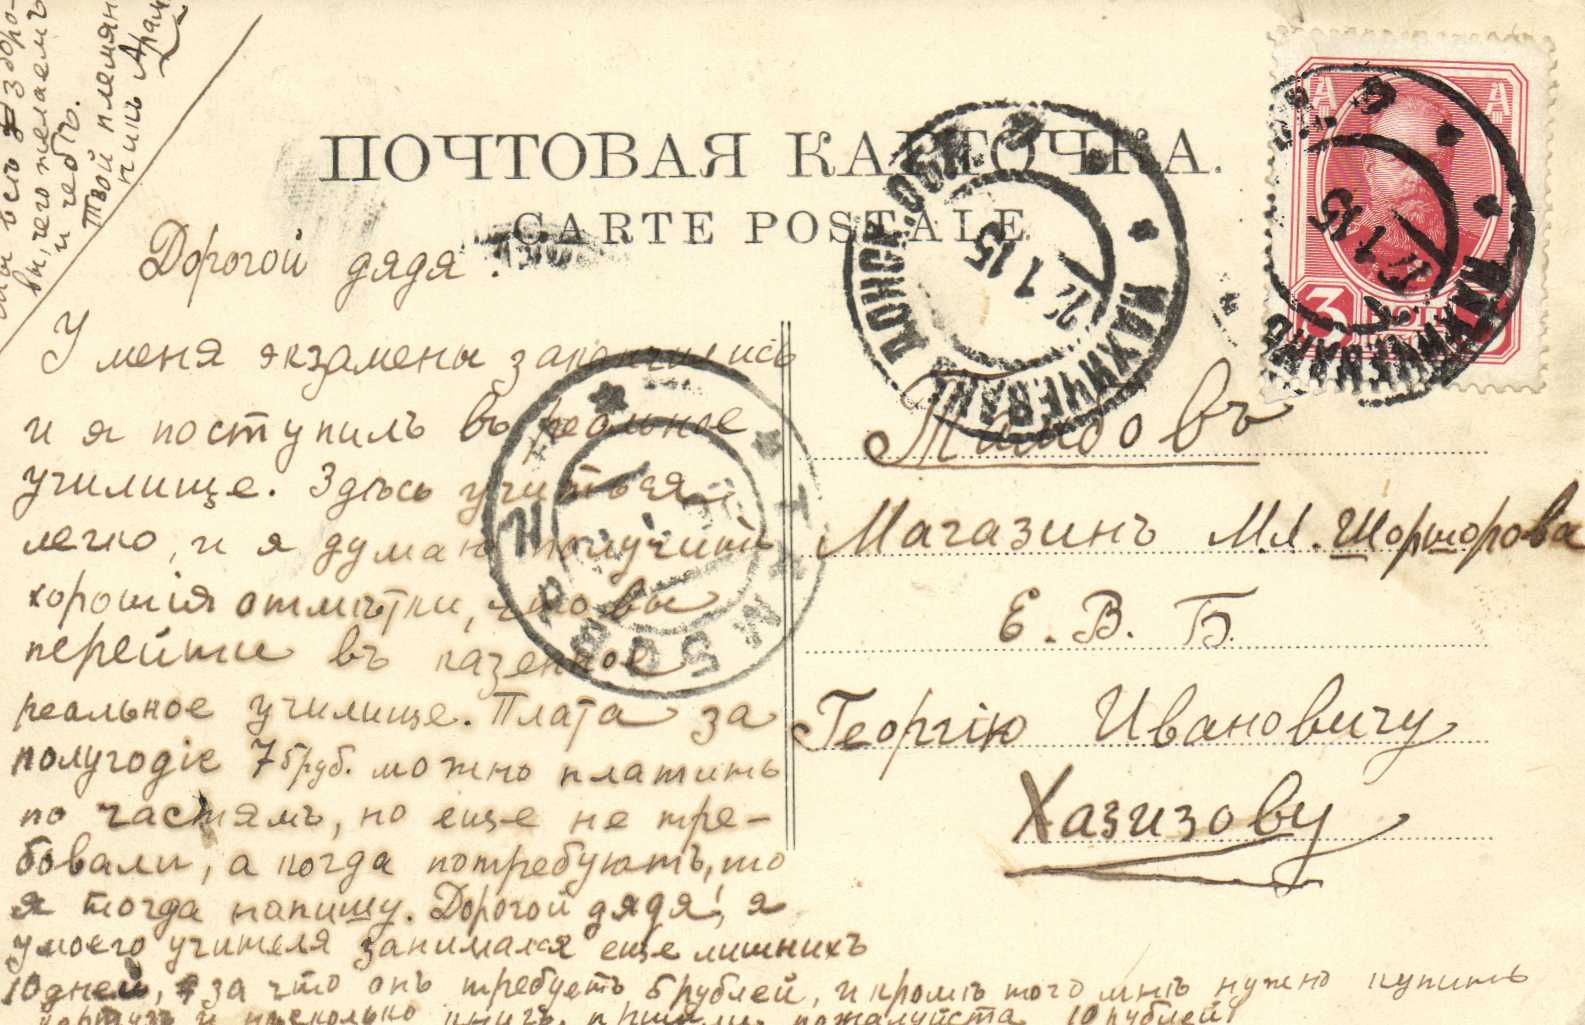 ПОЧТОВАЯ КАРТОЧКА.
CARTE POSTALE
Дорогой дядя.
У меня экзамены закончились
и я поступилъ въ реальное
училище. Здѣсь учиться
легко, и я думаю получить
хорошія отмѣтки, что бы
перейти въ казенное
реальное училище. Плата за
полугодіе 75 руб. можно платить
по частямъ, но еще не тре-
бовали, а когда потребуютъ, то
я тогда напишу. Дорогой дядя!, я
у моего учителя занимался еще лишнихъ
10 дней, за что онъ требуетъ 5 рублей, и кромѣ того мнѣ нужно купить
картузъ и нѣсколько книгъ. пришли пожалуйста 10 рублей
мы всѣ здоро-
вы, чего желаемъ
и тебѣ.
Твой племян
никъ Арам
Тамбовъ
Магазинъ М.Л. Шоршорова
Е. В. Б.
Георгію Ивановичу
Хазизову
НАХИЧЕВАНЬ ДОНСК. ОБЛ.
1 15
НАХИЧЕВАНЬ
1 15
ТАМБОВЪ
3 КОП